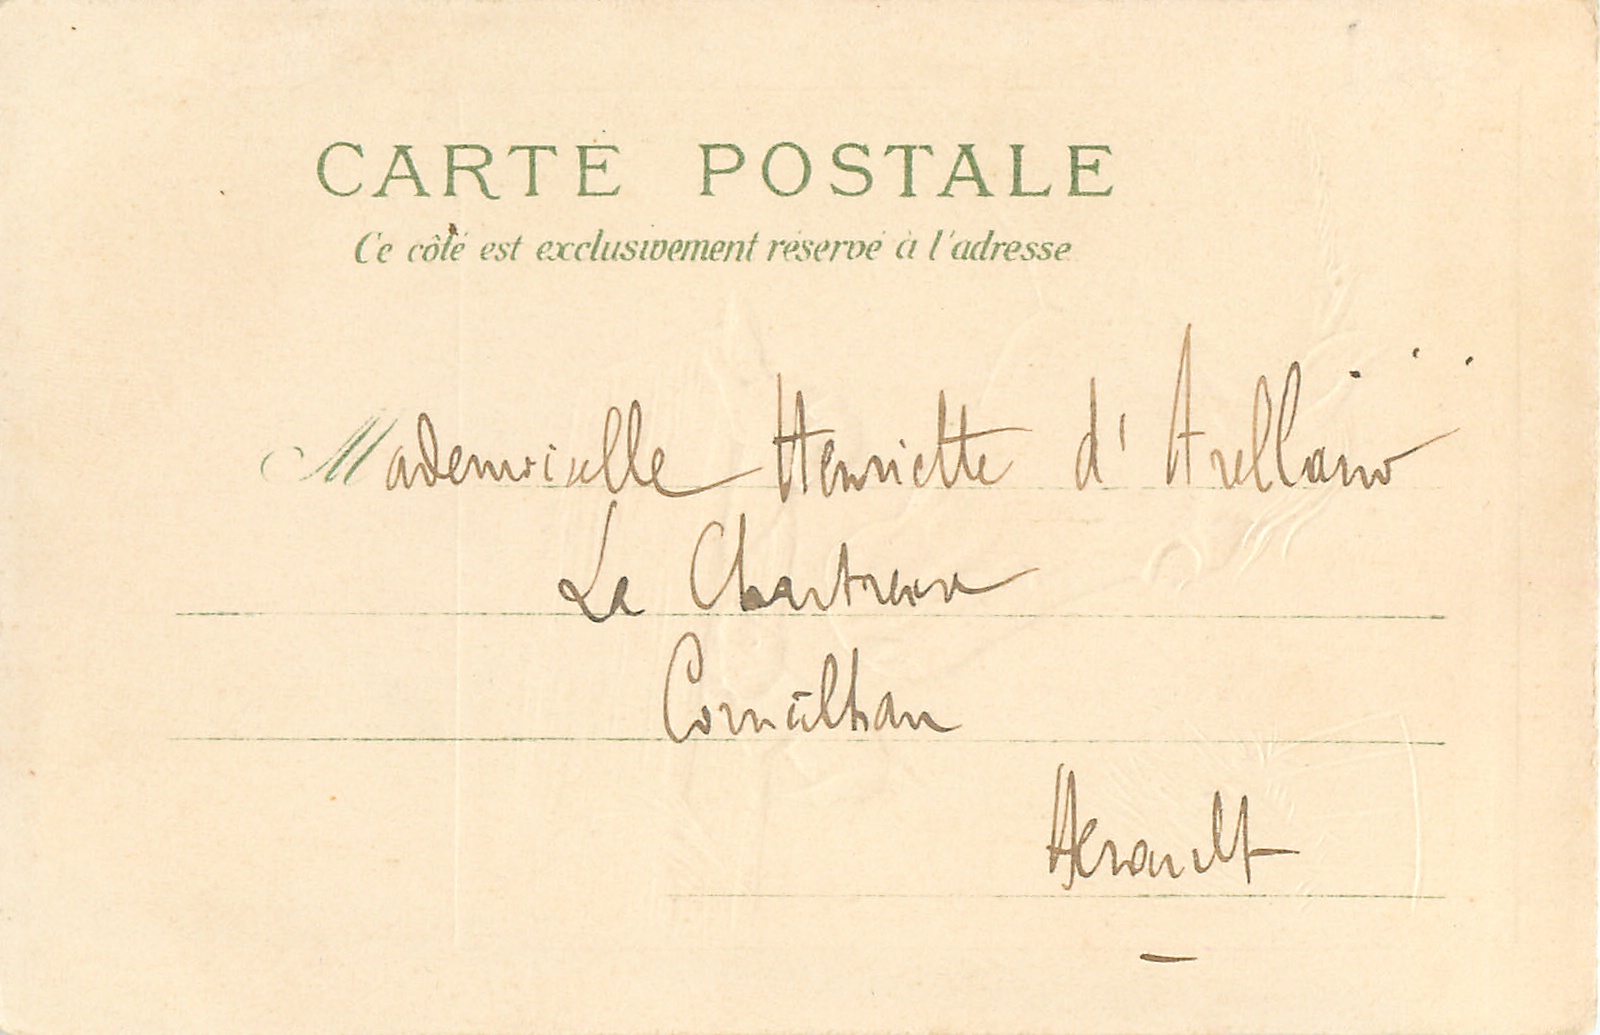 CARTE POSTALE
Ce côté est exclusivement réservé à l'adresse
Mademoiselle Henriette d'Arellano
La Chartreuse
Corneilhan
Herault